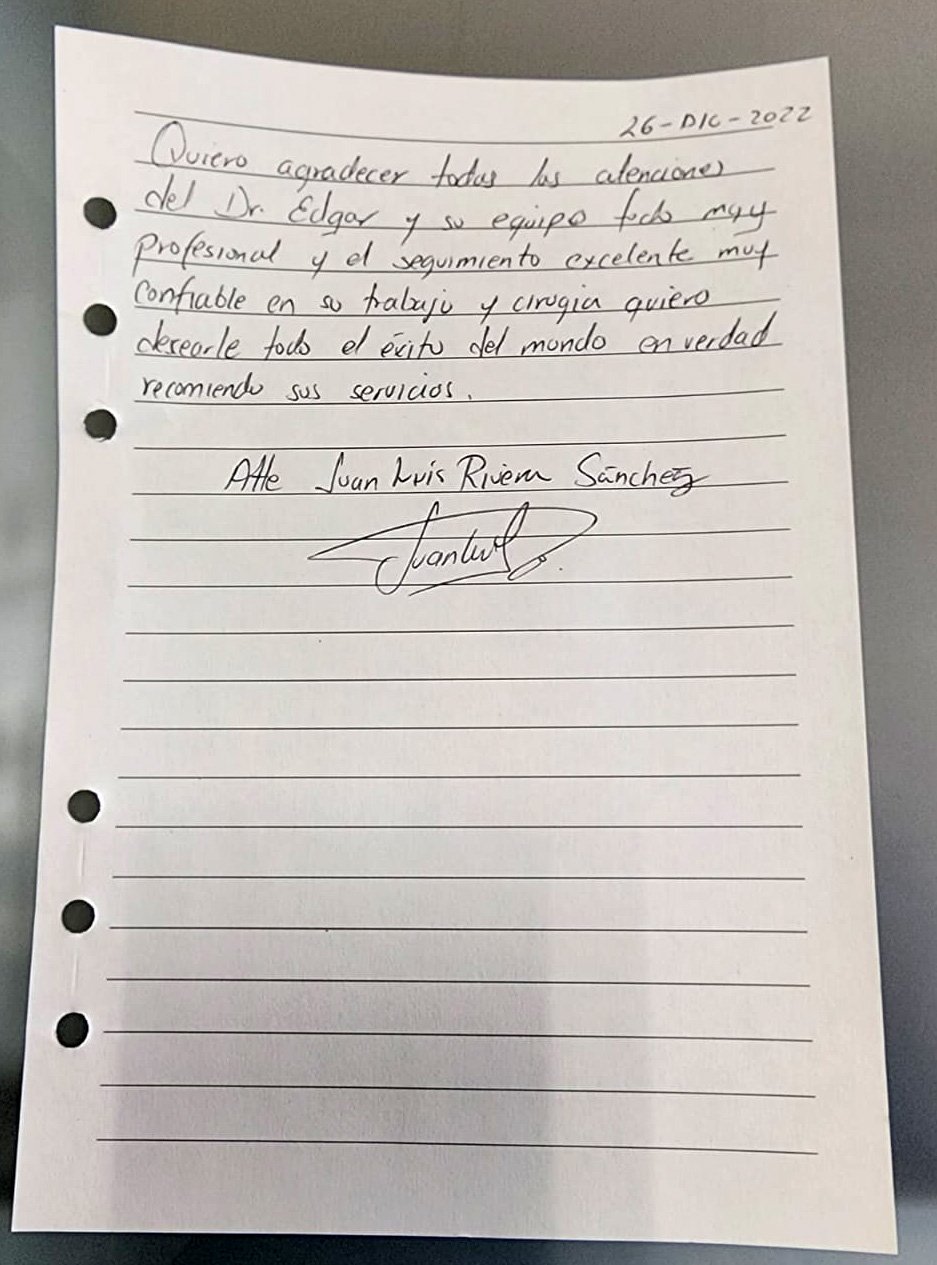 26-DIC-2022
Quiero agradecer todas las atenciones
del Dr. Edgar y su equipo todo muy
profesional y el seguimiento excelente muy
confiable en su trabajo y cirugia quiero
desearle todo el éxito del mundo en verdad
recomiendo sus servicios.
Atte Juan Luis Rivera Sánchez
Juan Luis